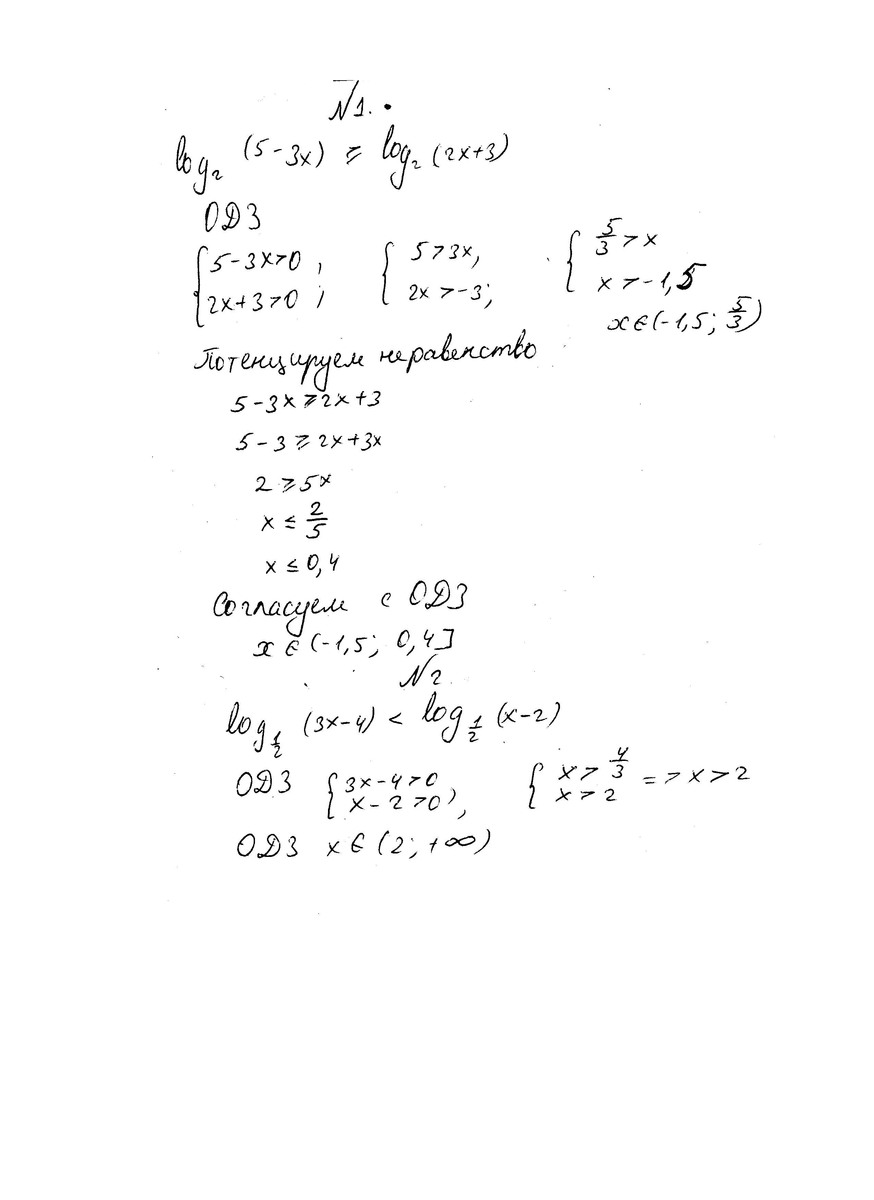 N1.
log₂ (5-3x) ≥ log₂ (2x+3)
ОДЗ
{ 5-3x>0, { 5>3x, { 5/3 > x
2x+3>0; 2x>-3; x>-1,5
x ∈ (-1,5; 5/3)
Потенцируем неравенство
5-3x ≥ 2x+3
5-3 ≥ 2x+3x
2 ≥ 5x
x ≤ 2/5
x ≤ 0,4
Согласуем с ОДЗ
x ∈ (-1,5; 0,4]
N2
log_{1/2} (3x-4) < log_{1/2} (x-2)
ОДЗ { 3x-4>0 { x > 4/3 => x>2
x-2>0, x>2
ОДЗ x ∈ (2; +∞)